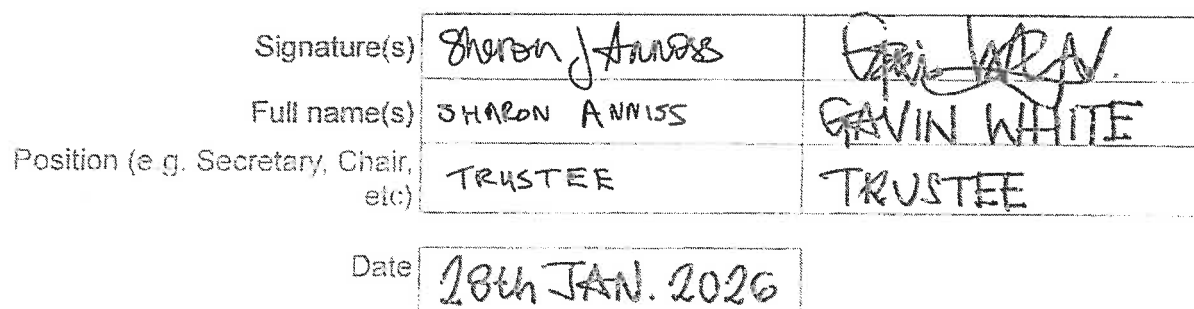 Signature(s) Sharon J Anniss
Full name(s) SHARON ANNISS GAVIN WHITE
Position (e.g. Secretary, Chair,
etc) TRUSTEE TRUSTEE
Date 28th JAN. 2026